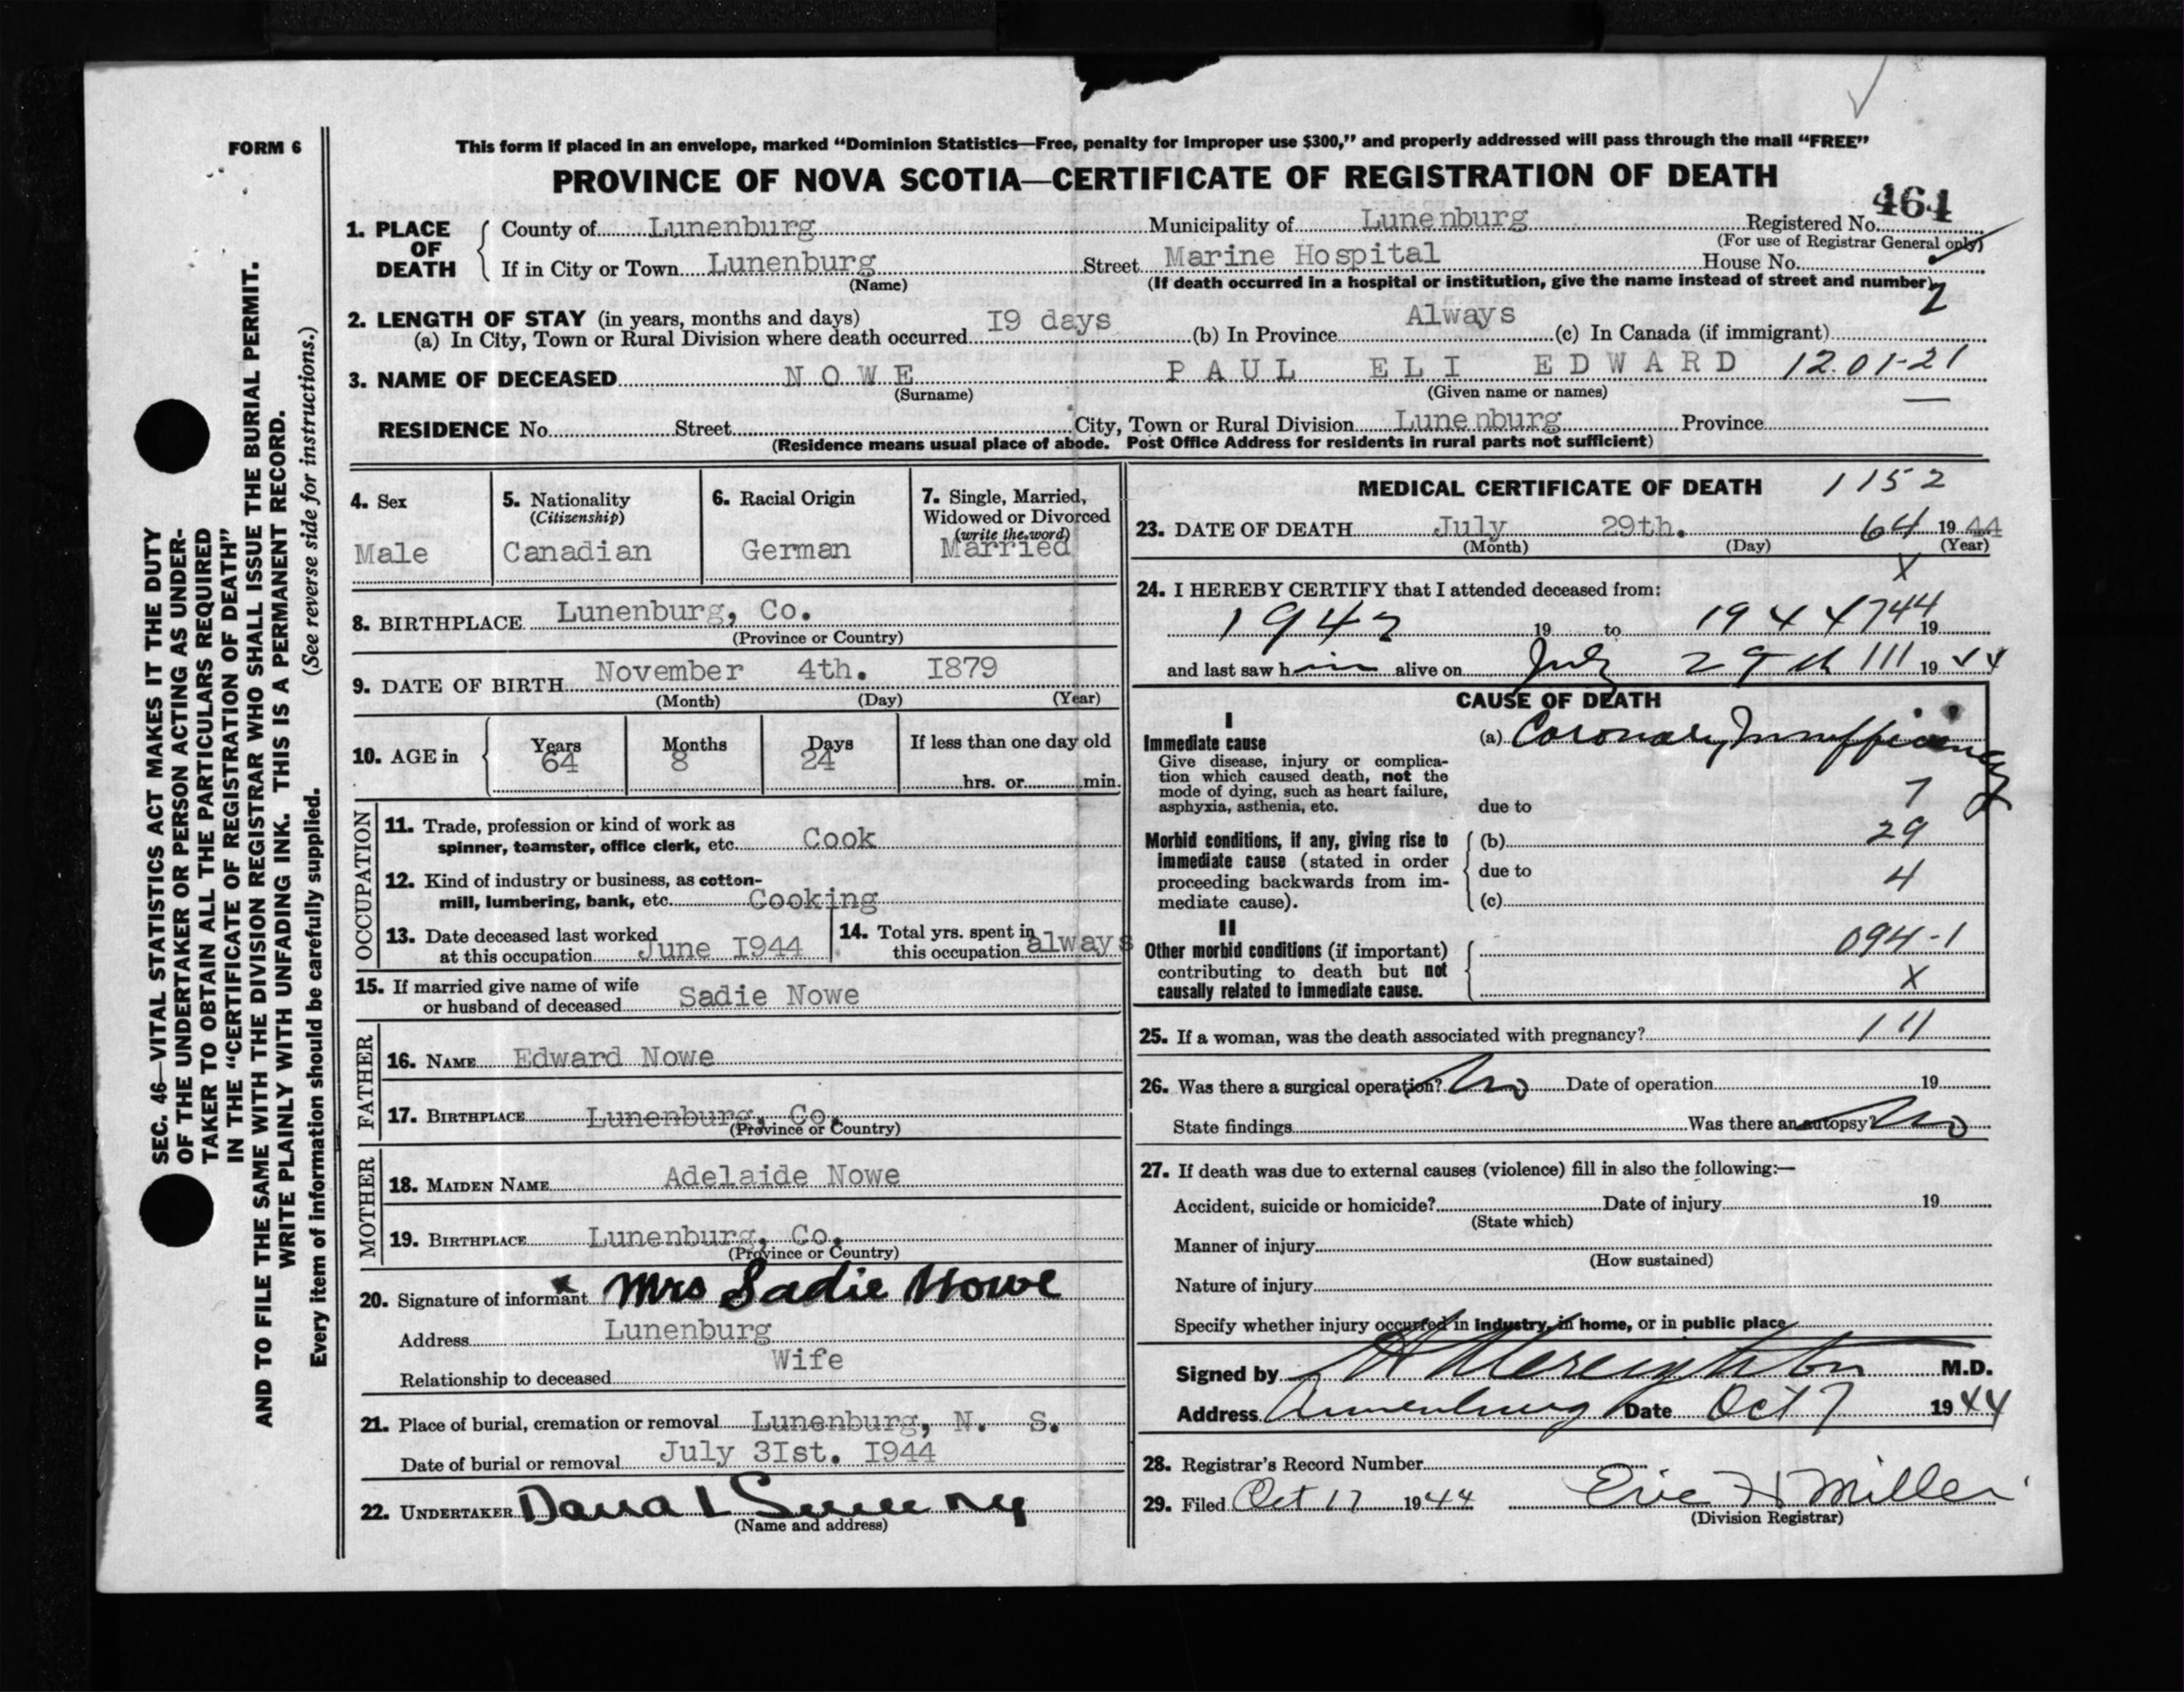 FORM 6
This form if placed in an envelope, marked “Dominion Statistics—Free, penalty for improper use $300,” and properly addressed will pass through the mail “FREE”
PROVINCE OF NOVA SCOTIA—CERTIFICATE OF REGISTRATION OF DEATH
464
1. PLACE OF DEATH County of Lunenburg Municipality of Lunenburg Registered No.
(For use of Registrar General only)
If in City or Town Lunenburg Street Marine Hospital House No.
(Name) (If death occurred in a hospital or institution, give the name instead of street and number)
2
2. LENGTH OF STAY (in years, months and days)
(a) In City, Town or Rural Division where death occurred I9 days (b) In Province Always (c) In Canada (if immigrant)
3. NAME OF DECEASED NOWE PAUL ELI EDWARD 12.01-21
(Surname) (Given name or names)
RESIDENCE No. Street City, Town or Rural Division Lunenburg Province
(Residence means usual place of abode. Post Office Address for residents in rural parts not sufficient)
4. Sex
Male
5. Nationality
(Citizenship)
Canadian
6. Racial Origin
German
7. Single, Married,
Widowed or Divorced
(write the word)
Married
8. BIRTHPLACE Lunenburg, Co.
(Province or Country)
9. DATE OF BIRTH November 4th. I879
(Month) (Day) (Year)
10. AGE in Years Months Days If less than one day old
64 8 24 hrs. or min.
OCCUPATION
11. Trade, profession or kind of work as
spinner, teamster, office clerk, etc. Cook
12. Kind of industry or business, as cotton-
mill, lumbering, bank, etc. Cooking
13. Date deceased last worked
at this occupation June I944
14. Total yrs. spent in
this occupation always
15. If married give name of wife
or husband of deceased Sadie Nowe
FATHER
16. NAME Edward Nowe
17. BIRTHPLACE Lunenburg, Co.
(Province or Country)
MOTHER
18. MAIDEN NAME Adelaide Nowe
19. BIRTHPLACE Lunenburg, Co.
(Province or Country)
20. Signature of informant x Mrs Sadie Nowe
Address Lunenburg
Relationship to deceased Wife
21. Place of burial, cremation or removal Lunenburg, N. S.
Date of burial or removal July 3Ist. I944
22. UNDERTAKER Dana L Sweeny
(Name and address)
MEDICAL CERTIFICATE OF DEATH 1152
23. DATE OF DEATH July 29th. 64 1944
(Month) (Day) (Year)
X
24. I HEREBY CERTIFY that I attended deceased from:
1942 19 to 1944 4744 19
and last saw him alive on July 29th 111 1944
CAUSE OF DEATH
I
Immediate cause
Give disease, injury or complica-
tion which caused death, not the
mode of dying, such as heart failure,
asphyxia, asthenia, etc.
(a) Coronary Insufficiency
7
due to
Morbid conditions, if any, giving rise to
immediate cause (stated in order
proceeding backwards from im-
mediate cause).
(b) 29
due to 4
(c)
II
Other morbid conditions (if important)
contributing to death but not
causally related to immediate cause.
094-1
X
25. If a woman, was the death associated with pregnancy? 111
26. Was there a surgical operation? No Date of operation 19
State findings Was there an autopsy? No
27. If death was due to external causes (violence) fill in also the following:—
Accident, suicide or homicide? Date of injury 19
(State which)
Manner of injury
(How sustained)
Nature of injury
Specify whether injury occurred in industry, in home, or in public place
Signed by M.D.
Address Lunenburg Date Oct 7 1944
28. Registrar’s Record Number
29. Filed Oct 17 1944 Eric H Miller
(Division Registrar)
SEC. 46—VITAL STATISTICS ACT MAKES IT THE DUTY
OF THE UNDERTAKER OR PERSON ACTING AS UNDER-
TAKER TO OBTAIN ALL THE PARTICULARS REQUIRED
IN THE “CERTIFICATE OF REGISTRATION OF DEATH”
AND TO FILE THE SAME WITH THE DIVISION REGISTRAR WHO SHALL ISSUE THE BURIAL PERMIT.
WRITE PLAINLY WITH UNFADING INK. THIS IS A PERMANENT RECORD.
Every item of information should be carefully supplied. (See reverse side for instructions.)